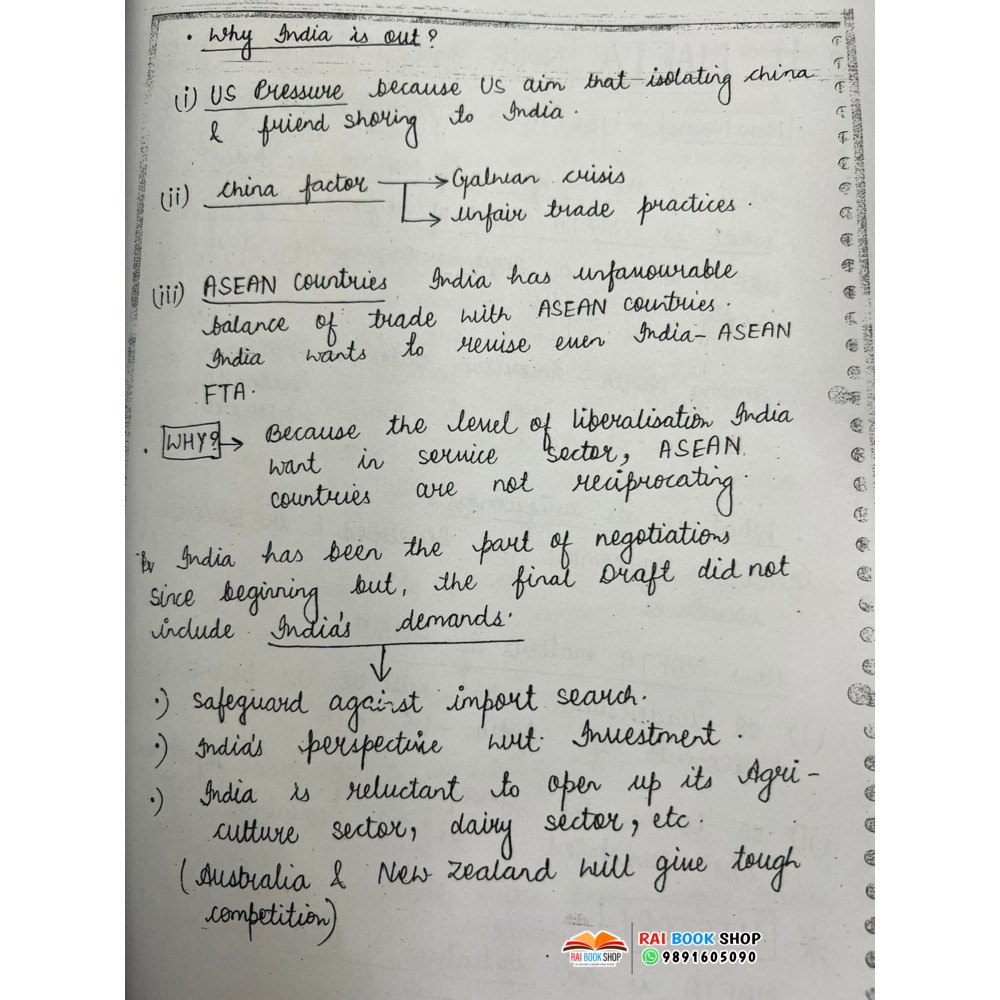 • Why India is out?
(i) US Pressure because US aim that isolating china
& friend shoring to India.
(ii) China factor → Galwan crisis
→ unfair trade practices.
(iii) ASEAN Countries India has unfavourable
balance of trade with ASEAN countries.
India wants to revise even India-ASEAN
FTA.
• WHY? → Because the level of liberalisation India
want in service sector, ASEAN.
countries are not reciprocating.
India has been the part of negotiations
since beginning but, the final Draft did not
include India's demands.
•) safeguard against import search.
•) India's perspective wrt. Investment.
•) India is reluctant to open up its Agri-
culture sector, dairy sector, etc.
(Australia & New Zealand will give tough
competition)
RAI BOOK SHOP
RAI BOOK SHOP
9891605090